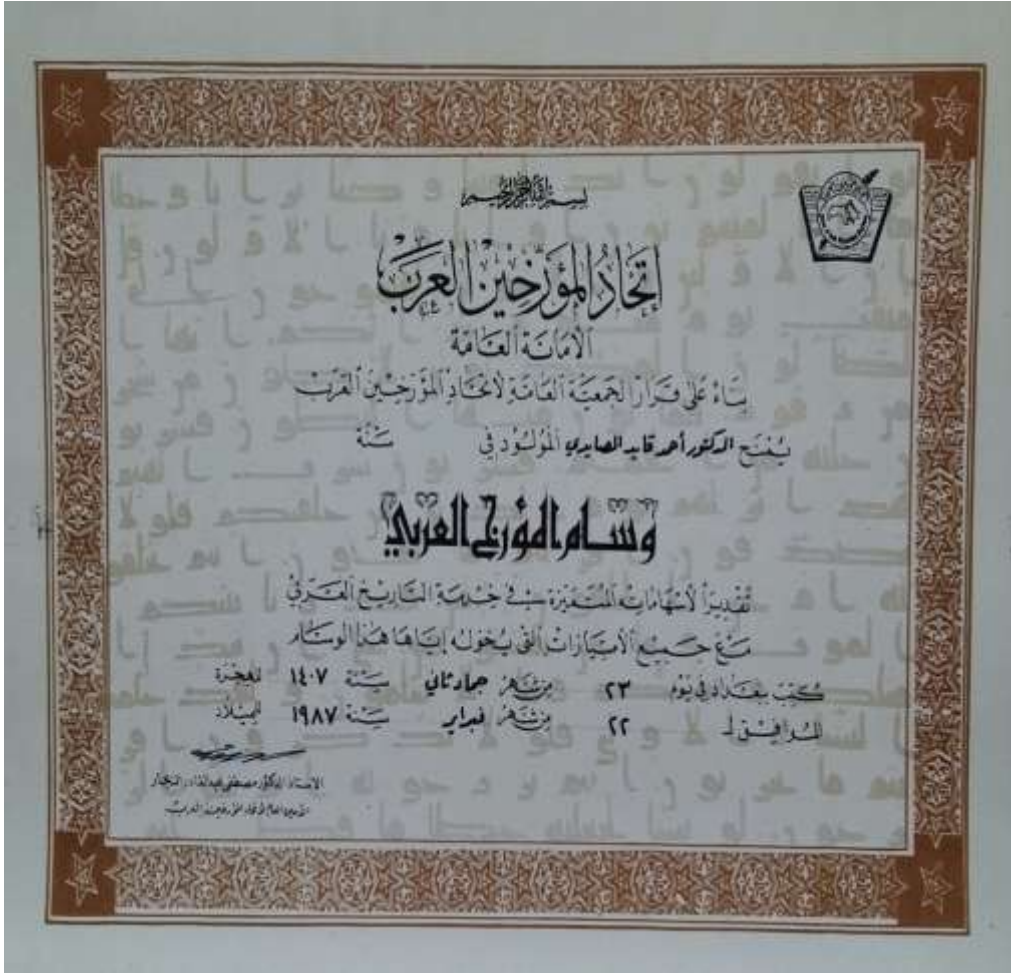 بسم الله الرحمن الرحيم
إتحاد المؤرخين العرب
الأمانة العامة
بناء على قرار الجمعية العامة لاتحاد المؤرخين العرب
يمنح الدكتور أحمد قايد الصايدي المولود في سنة
وسام المؤرخ العربي
تقديراً لأسهاماته المتميزة في خدمة التاريخ العربي
مع جميع الأمتيازات التي يخوله إياها هذا الوسام
كتب ببغداد في يوم ٢٣ من شهر جماد ثاني سنة ١٤٠٧ للهجرة
الموافق لـ ٢٢ من شهر فبراير سنة ١٩٨٧ للميلاد
الاستاذ الدكتور مصطفى عبدالقادر النجار
الأمين العام لأتحاد المؤرخين العرب